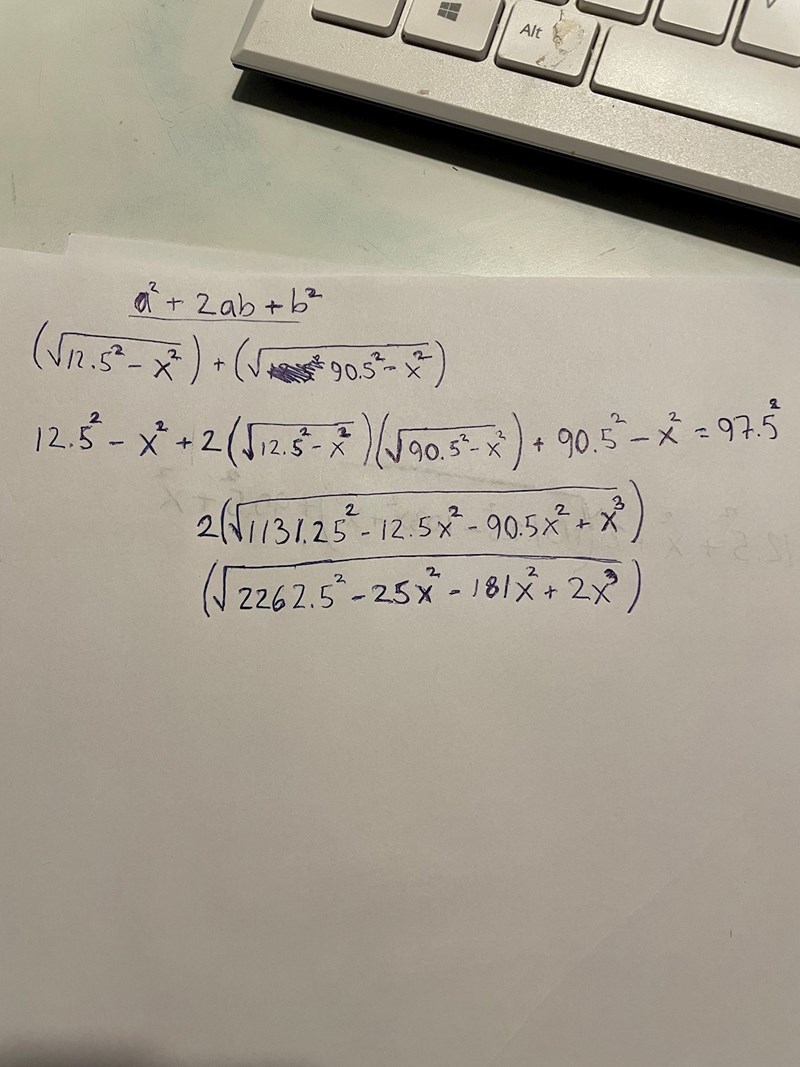 Alt
a² + 2ab + b²
(√12.5² - x²) + (√90.5² - x²)
12.5² - x² + 2(√12.5² - x²)(√90.5² - x²) + 90.5² - x² = 97.5²
2(√1131.25² - 12.5x² - 90.5x² + x³)
(√2262.5² - 25x² - 181x² + 2x³)